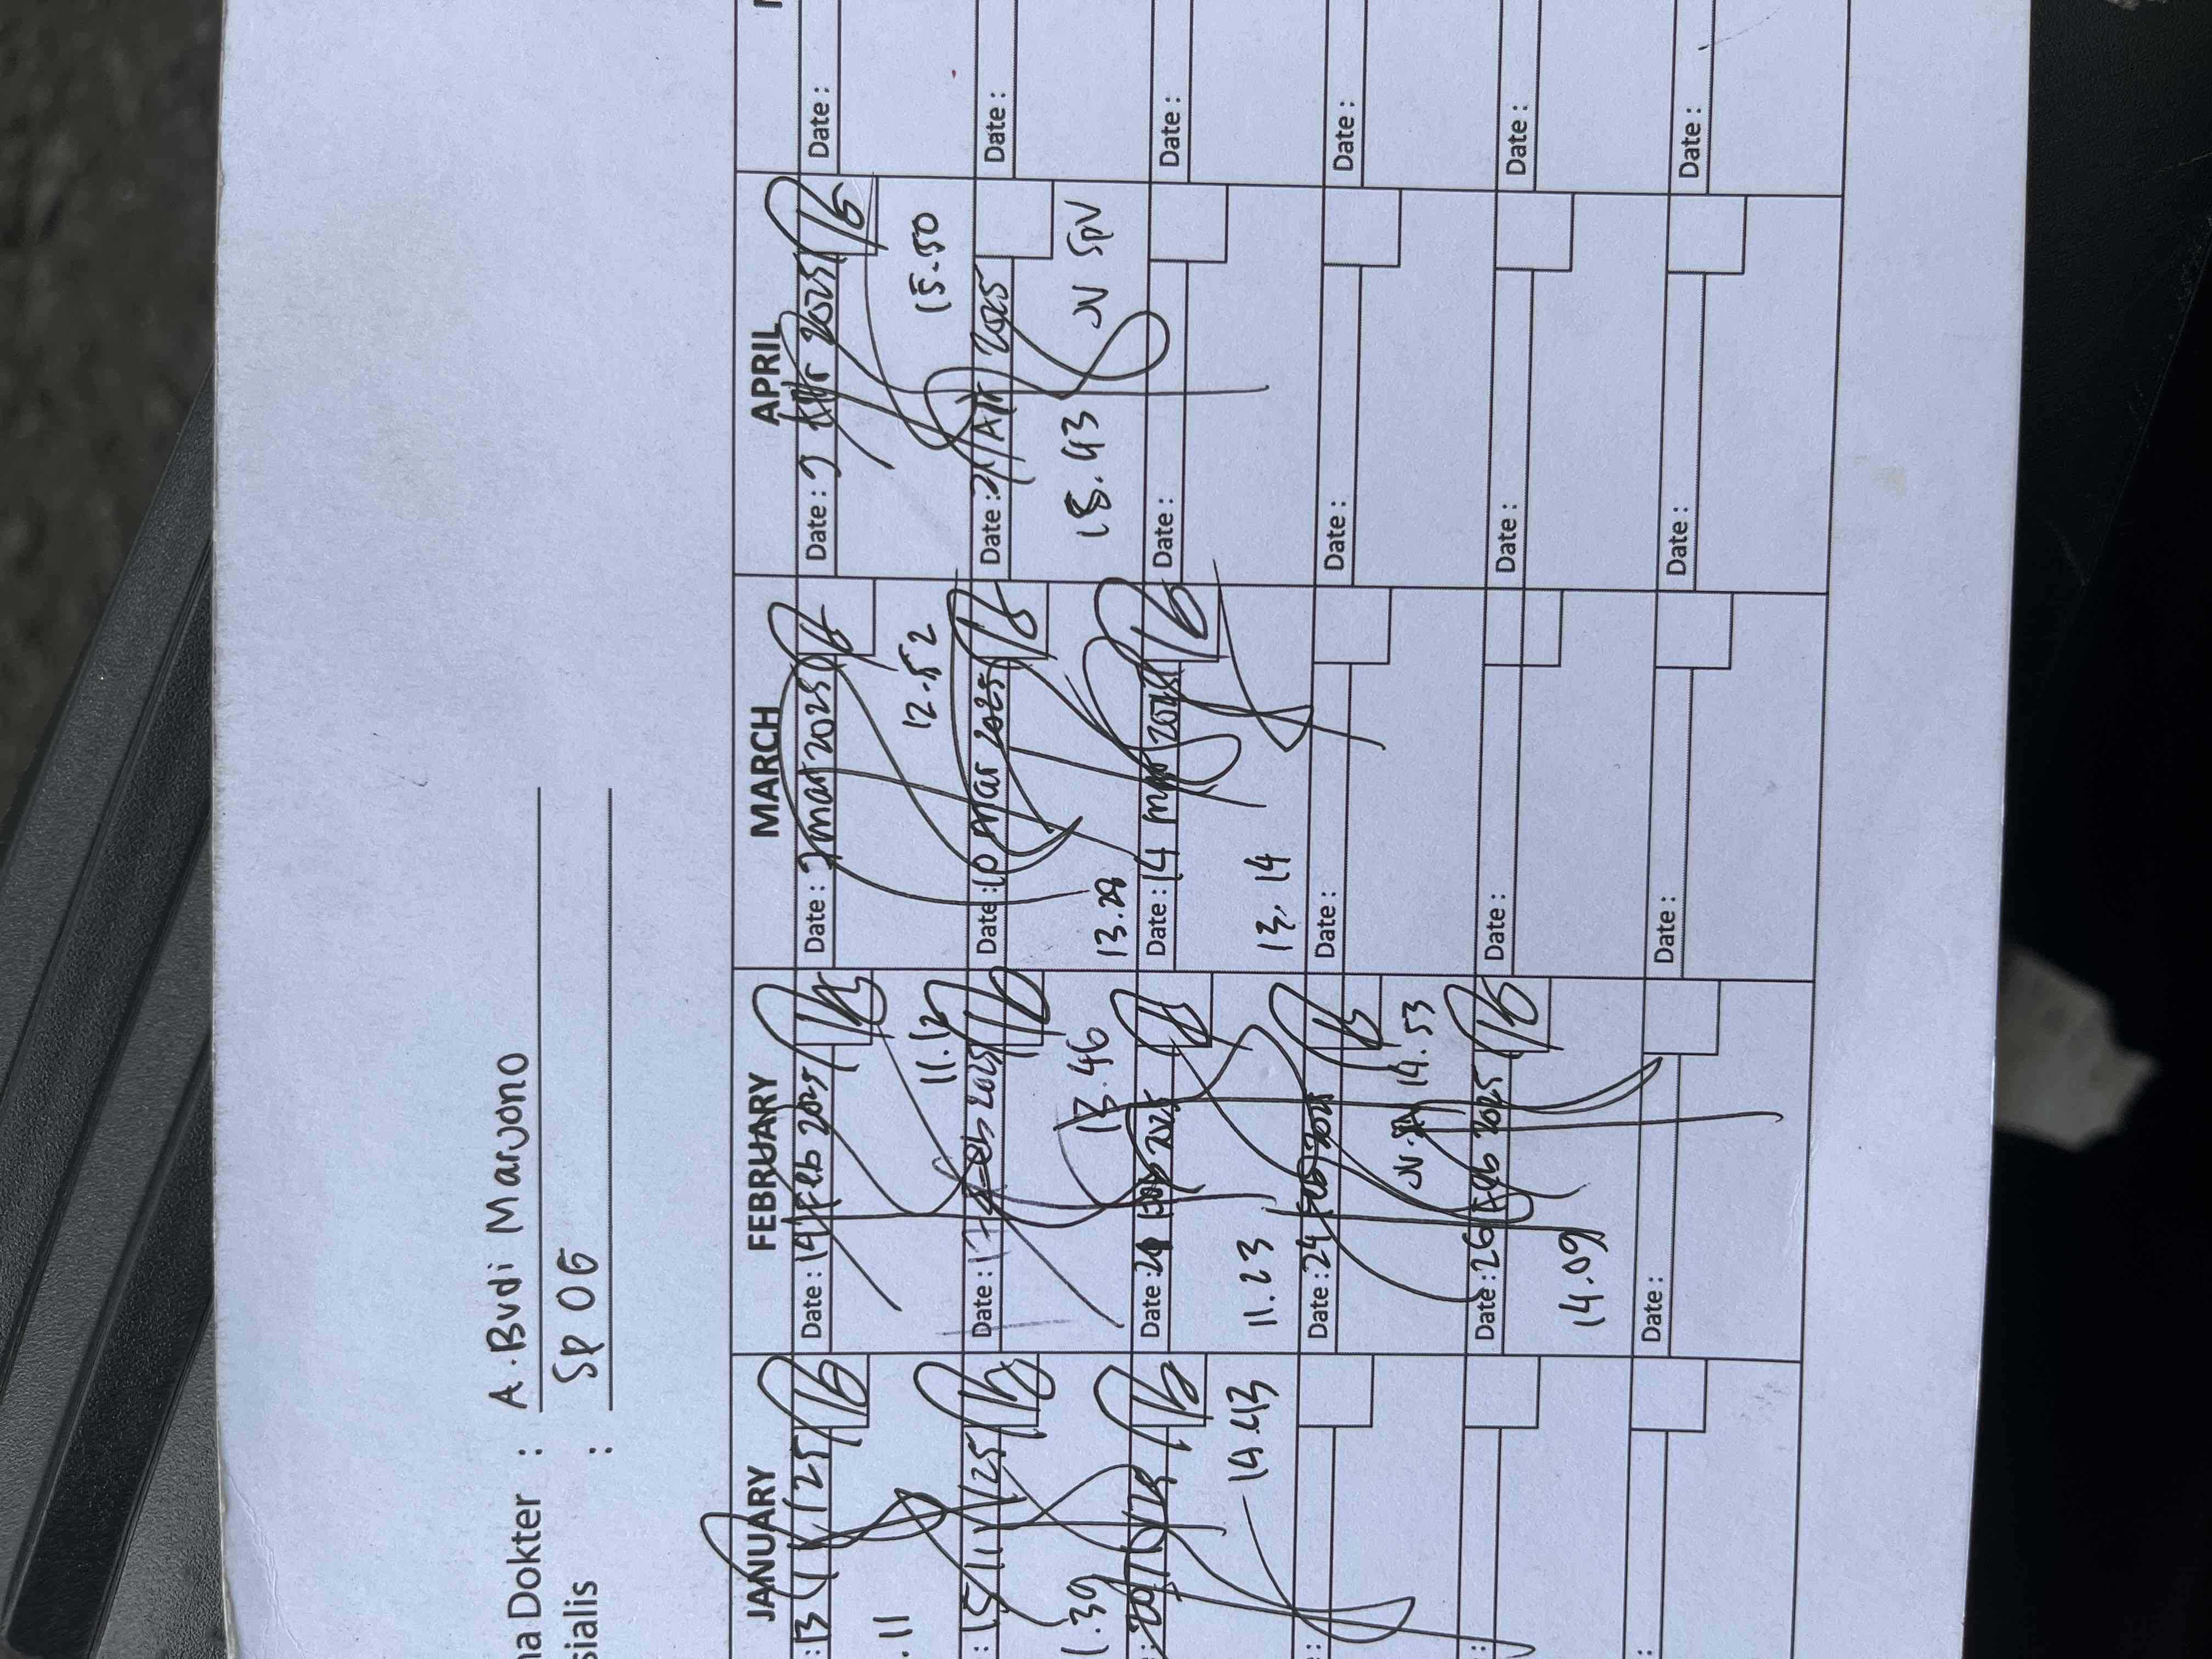 ma Dokter : A. Budi Marjono
sialis : Sp OG
JANUARY FEBRUARY MARCH APRIL
: 13 / 1 / 25 Date : 14 Feb 2025 Date : 7 mar 2025 Date : 9 Apr 2025 Date :
.11 11.12 12.52 15.50
: 15 / 1 / 25 Date : 17 Feb 2025 Date : 10 mar 2025 Date : 21 Apr 2025 Date :
1.39 13.46 13.28 18.43 JV SPV
: 20 / 1 / 25 Date : 2025 Date : 14 mar 2025 Date : Date :
14.43 11.23 13.14
: Date : 24 Feb 2025 Date : Date : Date :
JV 14.53
: Date : 26 Feb 2025 Date : Date : Date :
14.09
: Date : Date : Date : Date :